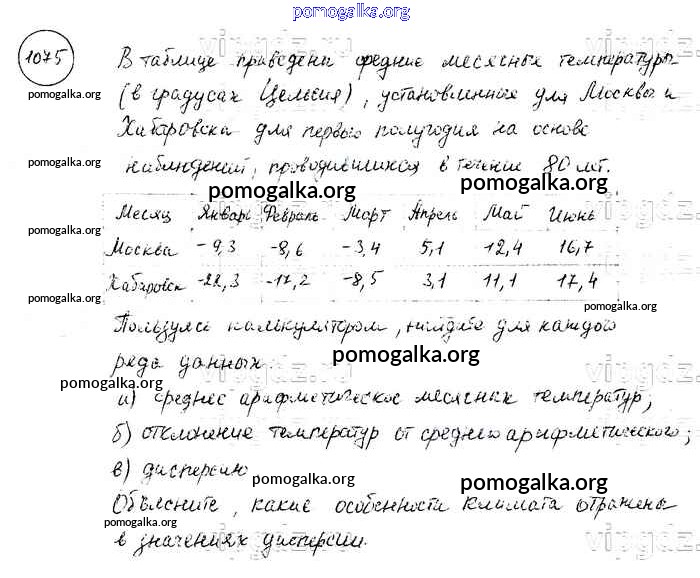 pomogalka.org
1075 В таблице приведены средние месячные температуры
pomogalka.org (в градусах Цельсия), установленные для Москвы и
Хабаровска для первого полугодия на основе
pomogalka.org наблюдений, проводившихся в течение 80 лет.
pomogalka.org pomogalka.org
Месяц Январь Февраль Март Апрель Май Июнь
pomogalka.org
Москва -9,3 -8,6 -3,4 5,1 12,4 16,7
Хабаровск -22,3 -17,2 -8,5 3,1 11,1 17,4
pomogalka.org pomogalka.org
Пользуясь калькулятором, найдите для каждого
ряда данных: pomogalka.org
pomogalka.org
а) среднее арифметическое месячных температур;
б) отклонение температур от среднего арифметического;
в) дисперсию
pomogalka.org pomogalka.org
Объясните, какие особенности климата отражены
pomogalka.org
в значениях дисперсии.
pomogalka.org